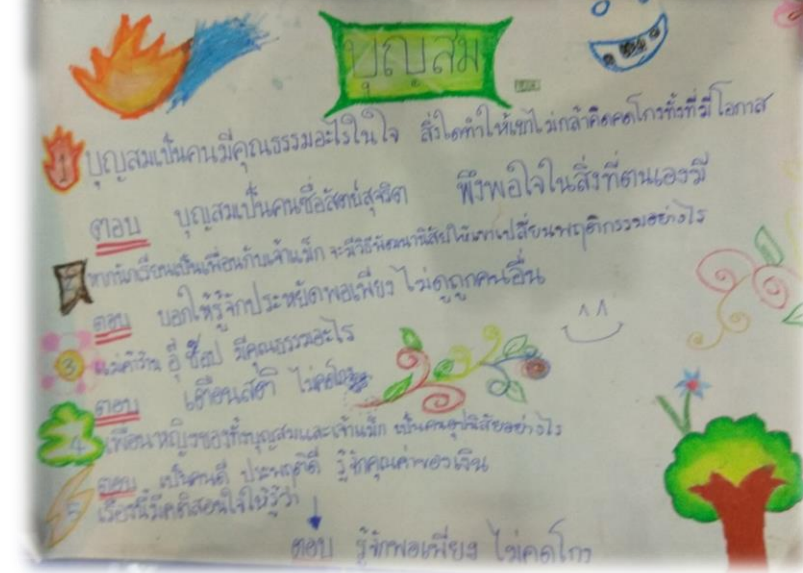 บุญสม
1 บุญสมเป็นคนมีคุณธรรมอะไรในใจ สิ่งใดทำให้เขาไม่กล้าคิดคดโกงทั้งที่มีโอกาส
ตอบ บุญสมเป็นคนซื่อสัตย์สุจริต พึงพอใจในสิ่งที่ตนเองมี
2 หากนักเรียนเป็นเพื่อนกับเจ้าแม็ก จะมีวิธีพัฒนานิสัยให้เขาเปลี่ยนพฤติกรรมอย่างไร
ตอบ บอกให้รู้จักประหยัดพอเพียง ไม่ดูถูกคนอื่น
3 แม่ค้าร้าน อู้ ช็อป มีคุณธรรมอะไร
ตอบ เตือนสติ ไม่คดโกง
4 เพื่อนหญิงของทั้งบุญสมและเจ้าแม็ก เป็นคนอุปนิสัยอย่างไร
ตอบ เป็นคนดี ประพฤติดี รู้จักคุณค่าของเงิน
5 เรื่องนี้มีคติสอนใจให้รู้ว่า
ตอบ รู้จักพอเพียง ไม่คดโกง